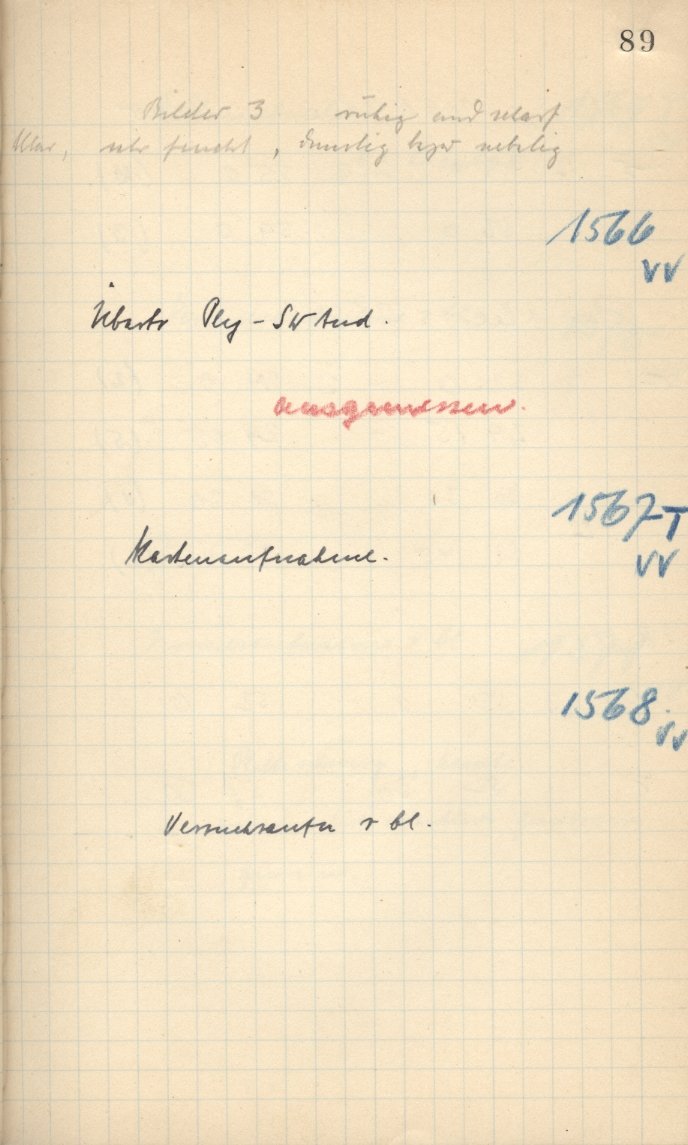 89
Bilder 3 ruhig und scharf
klar, sehr feucht, dunstig bzw nebelig
1566
VV
Überb Plej - SW And.
ausgemessen.
1567 T
VV
Kartenaufnahme.
1568.
VV
Versuchsaufn v bl.